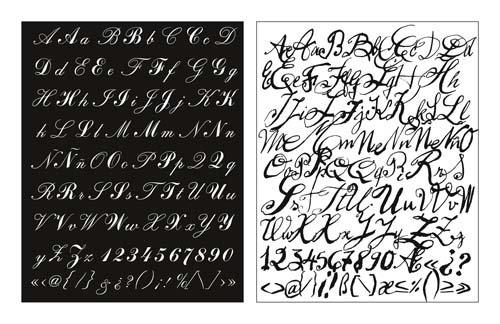 A A a B B b C C D
D d E E e F F f G G g
H H h I I i J J j K K
k L L l M M m N N n
N Ñ ñ O o P P p Q Q q
R R r S S s T T t U U u
V V v W w X X x Y Y
y Z Z z 1234567890
«@{/}&¿?()¡!%[\]/»
A A a B B b C c D d
E E e F f G g H h
I i J j K k L l
M m N n Ñ O
O o P p Q q R r S
S s T t U u V v W
W w X x Y y Z z
1234567890 Æ « ¿ ?
<>@{/}!ß[\]æ≤%()≥»